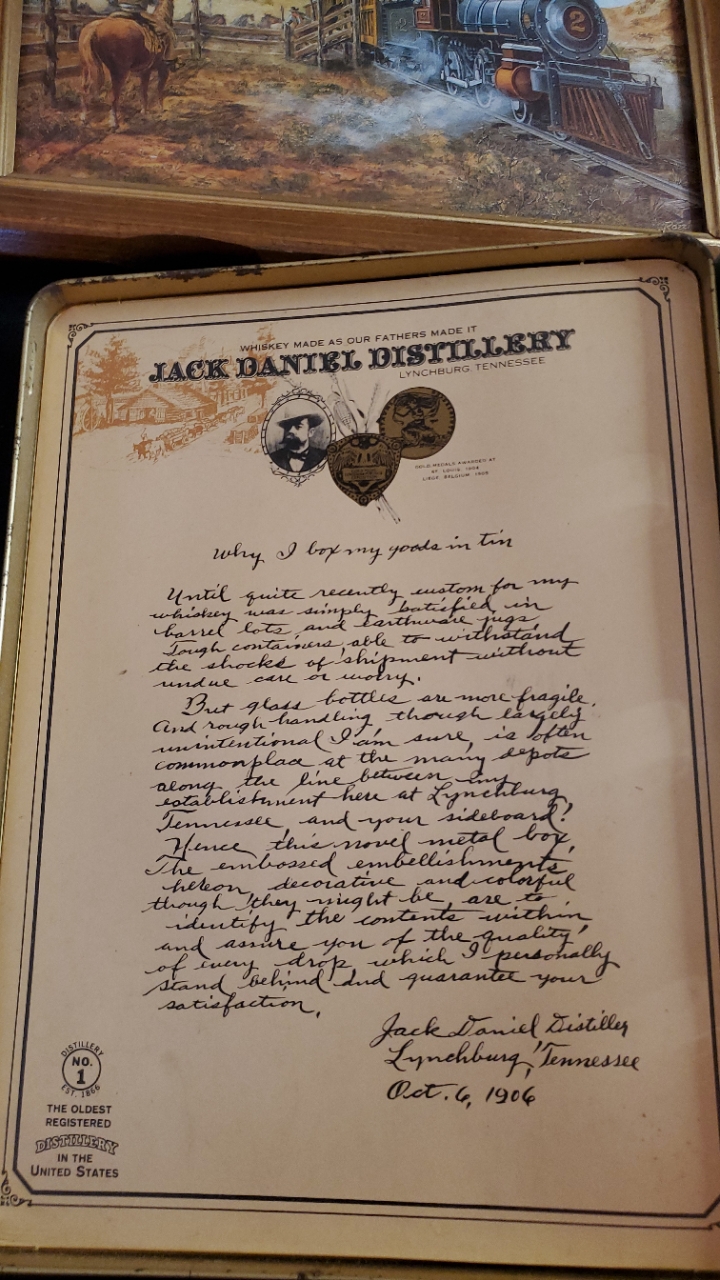 2
2
WHISKEY MADE AS OUR FATHERS MADE IT
JACK DANIEL DISTILLERY
LYNCHBURG, TENNESSEE
GOLD MEDALS AWARDED AT
ST. LOUIS, 1904
LIEGE, BELGIUM, 1905
Why I box my goods in tin
Until quite recently custom for my
whiskey was simply satisfied in
barrel lots and earthware jugs,
Tough containers, able to withstand
the shocks of shipment without
undue care or worry.
But glass bottles are more fragile,
And rough handling though largely
unintentional I am sure, is often
commonplace at the many depots
along the line between my
establishment here at Lynchburg,
Tennessee, and your sideboard!
Hence this novel metal box,
The embossed embellishments
hereon, decorative and colorful
though they might be, are to
identify the contents within
and assure you of the quality
of every drop which I personally
stand behind and guarantee your
satisfaction.
Jack Daniel Distiller
Lynchburg, Tennessee
Oct. 6, 1906
DISTILLERY
NO.
1
EST. 1866
THE OLDEST
REGISTERED
DISTILLERY
IN THE
UNITED STATES